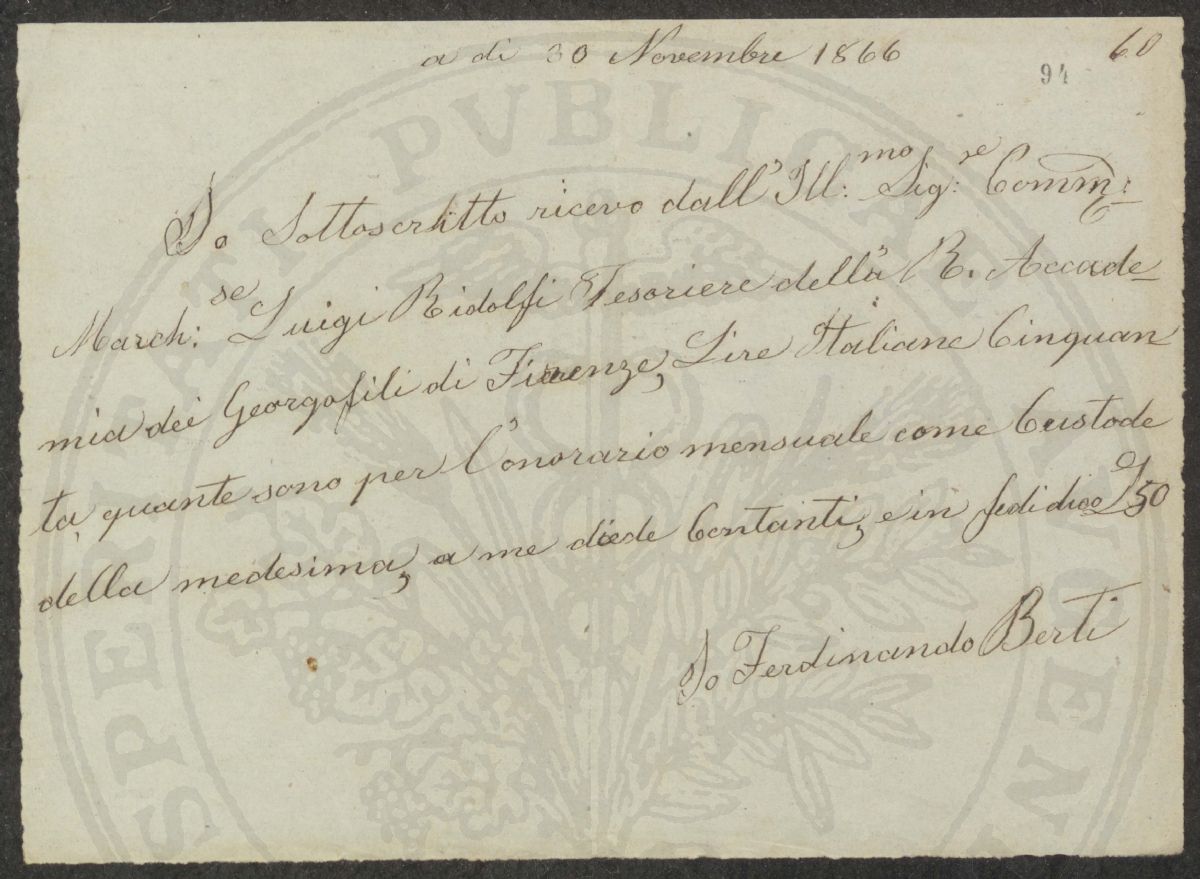 a dì 30 Novembre 1866
60
94
Io Sottoscritto ricevo dall' Ill:mo Sig:re Comm:
March:se Luigi Ridolfi Tesoriere della R. Accade-
mia dei Georgofili di Firenze, Lire Italiane Cinquan-
ta, quante sono per l'onorario mensuale come Custode
della medesima, a me diede Contanti, e in fedi dico £ 50
Io Ferdinando Berti
PVBLICAE
SPERITATI
AVGEN